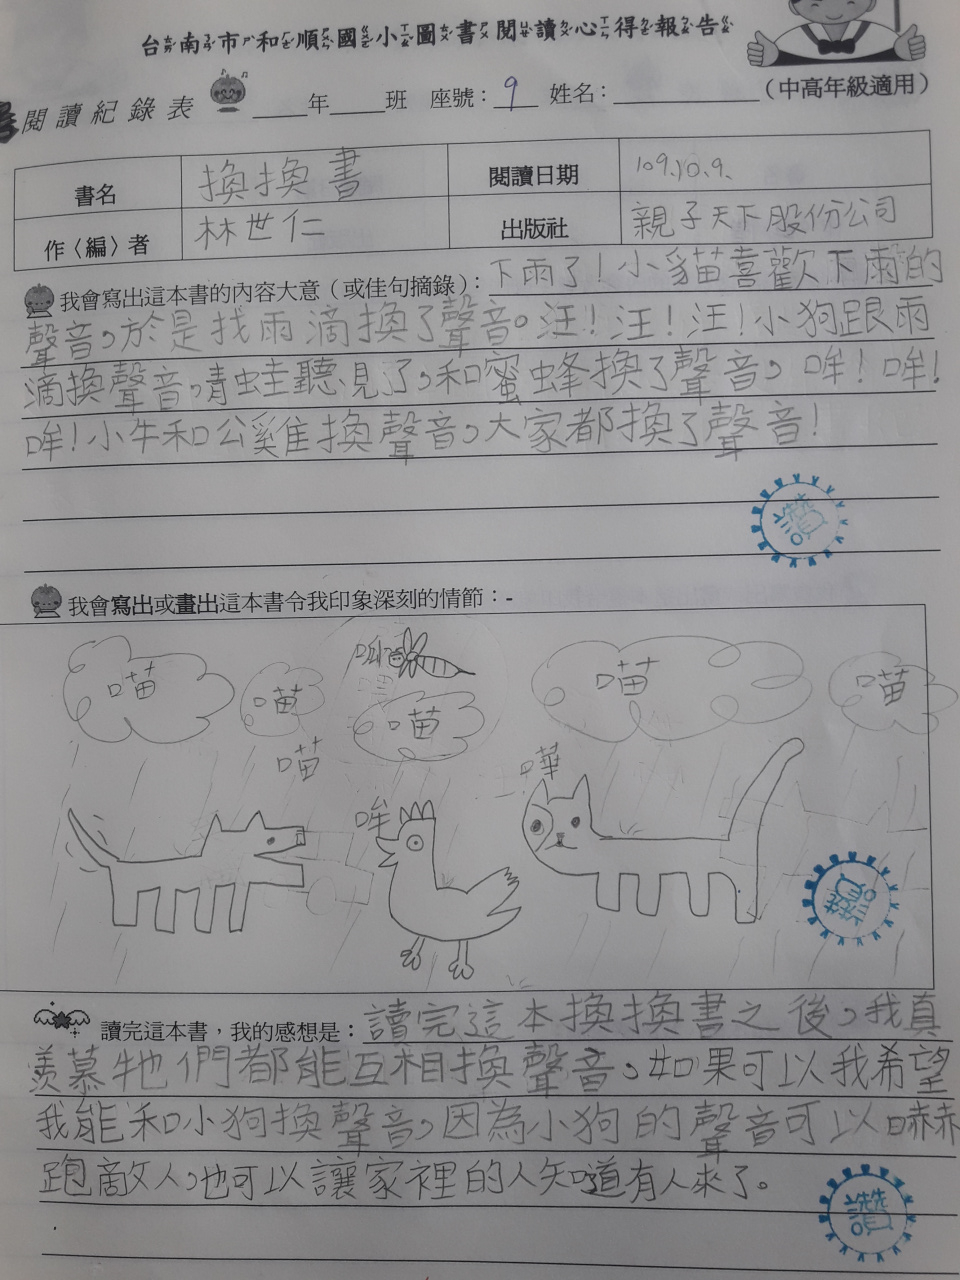 台南市和順國小圖書閱讀心得報告
閱讀紀錄表 ____年____班 座號：9 姓名：________ （中高年級適用）
書名 換換書 閱讀日期 109.10.9.
作〈編〉者 林世仁 出版社 親子天下股份公司
我會寫出這本書的內容大意（或佳句摘錄）：下雨了！小貓喜歡下雨的
聲音，於是找雨滴換了聲音。汪！汪！汪！小狗跟雨
滴換聲音，青蛙聽見了，和蜜蜂換了聲音，哞！哞！
哞！小牛和公雞換聲音，大家都換了聲音！
讚
我會寫出或畫出這本書令我印象深刻的情節：-
喵 喵 喵 喵 喵
喵
哞
嘩
讚
讀完這本書，我的感想是：讀完這本換換書之後，我真
羨慕牠們都能互相換聲音，如果可以我希望
我能和小狗換聲音，因為小狗的聲音可以嚇
跑敵人，也可以讓家裡的人知道有人來了。
讚